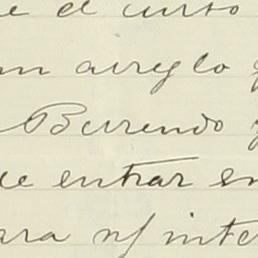 e el curso
un arreglo
Burrendo y
de entrar en
ara mj inte